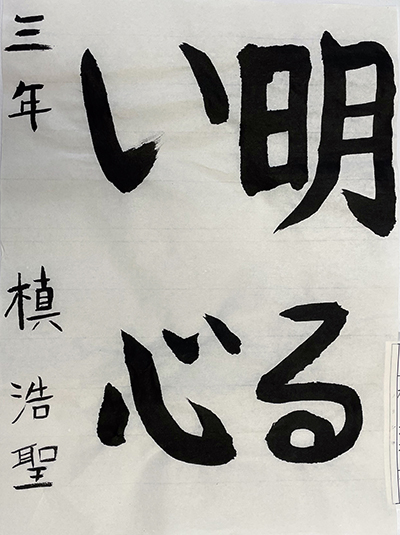 明る
い心
三年 槙浩聖